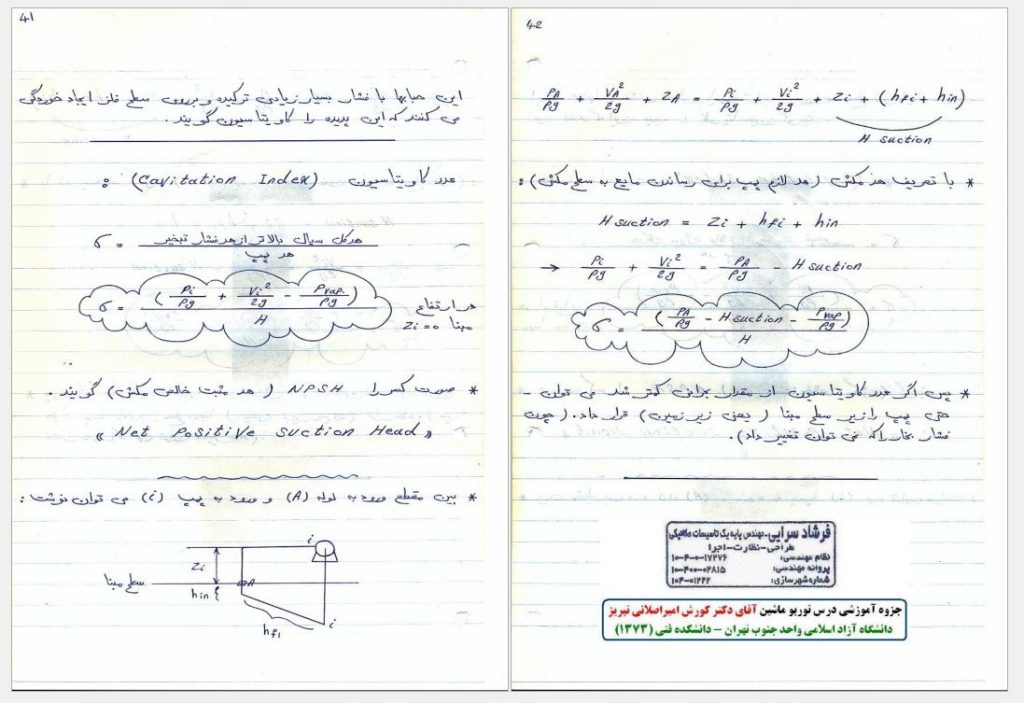 41
این حبابها با فشار بسیار زیادی ترکیده و برروی سطح فلز ایجاد خوردگی
می کنند که این پدیده را کاویتاسیون گویند.
عدد کاویتاسیون (Cavitation Index) :
σ = هد کل سیال بالاتر از هد فشار تبخیر / هد پمپ
σ = (Pi/ρg + Vi²/2g - Pvap./ρg) / H
در ارتفاع
مبنا Zi=0
* صورت کسر را NPSH (هد مثبت خالص مکش) گویند.
« Net Positive Suction Head »
* بین مقطع ورود به لوله (A) و ورود به پمپ (i) می توان نوشت :
i
Zi
سطح مبنا
A
hin
hfi
i
42
PA/ρg + VA²/2g + ZA = Pi/ρg + Vi²/2g + Zi + (hfi + hin)
H suction
* با تعریف هد مکش (هد لازم پمپ برای رساندن مایع به سطح مکش) :
H suction = Zi + hfi + hin
→ Pi/ρg + Vi²/2g = PA/ρg - H suction
σ = (PA/ρg - H suction - Pvap/ρg) / H
* پس اگر عدد کاویتاسیون از مقدار بحرانی کمتر شد می توان -
حتی پمپ را زیر سطح مبنا (یعنی زیر زمین) قرار داد. (چون
فشار بخار را که نمی توان تغییر داد).
فرشاد سرایی-مهندس پایه یک تاسیسات مکانیکی
طراحی-نظارت-اجرا
نظام مهندسی: ۱۰-۴-۰-۱۷۲۷۶
پروانه مهندسی: ۱۰-۴۰۰-۰۲۸۱۵
شماره شهرسازی: ۱۰۴-۰۱۲۲۲
جزوه آموزشی درس توربو ماشین آقای دکتر کورش امیراصلانی تبریز
دانشگاه آزاد اسلامی واحد جنوب تهران - دانشکده فنی (۱۳۷۳)